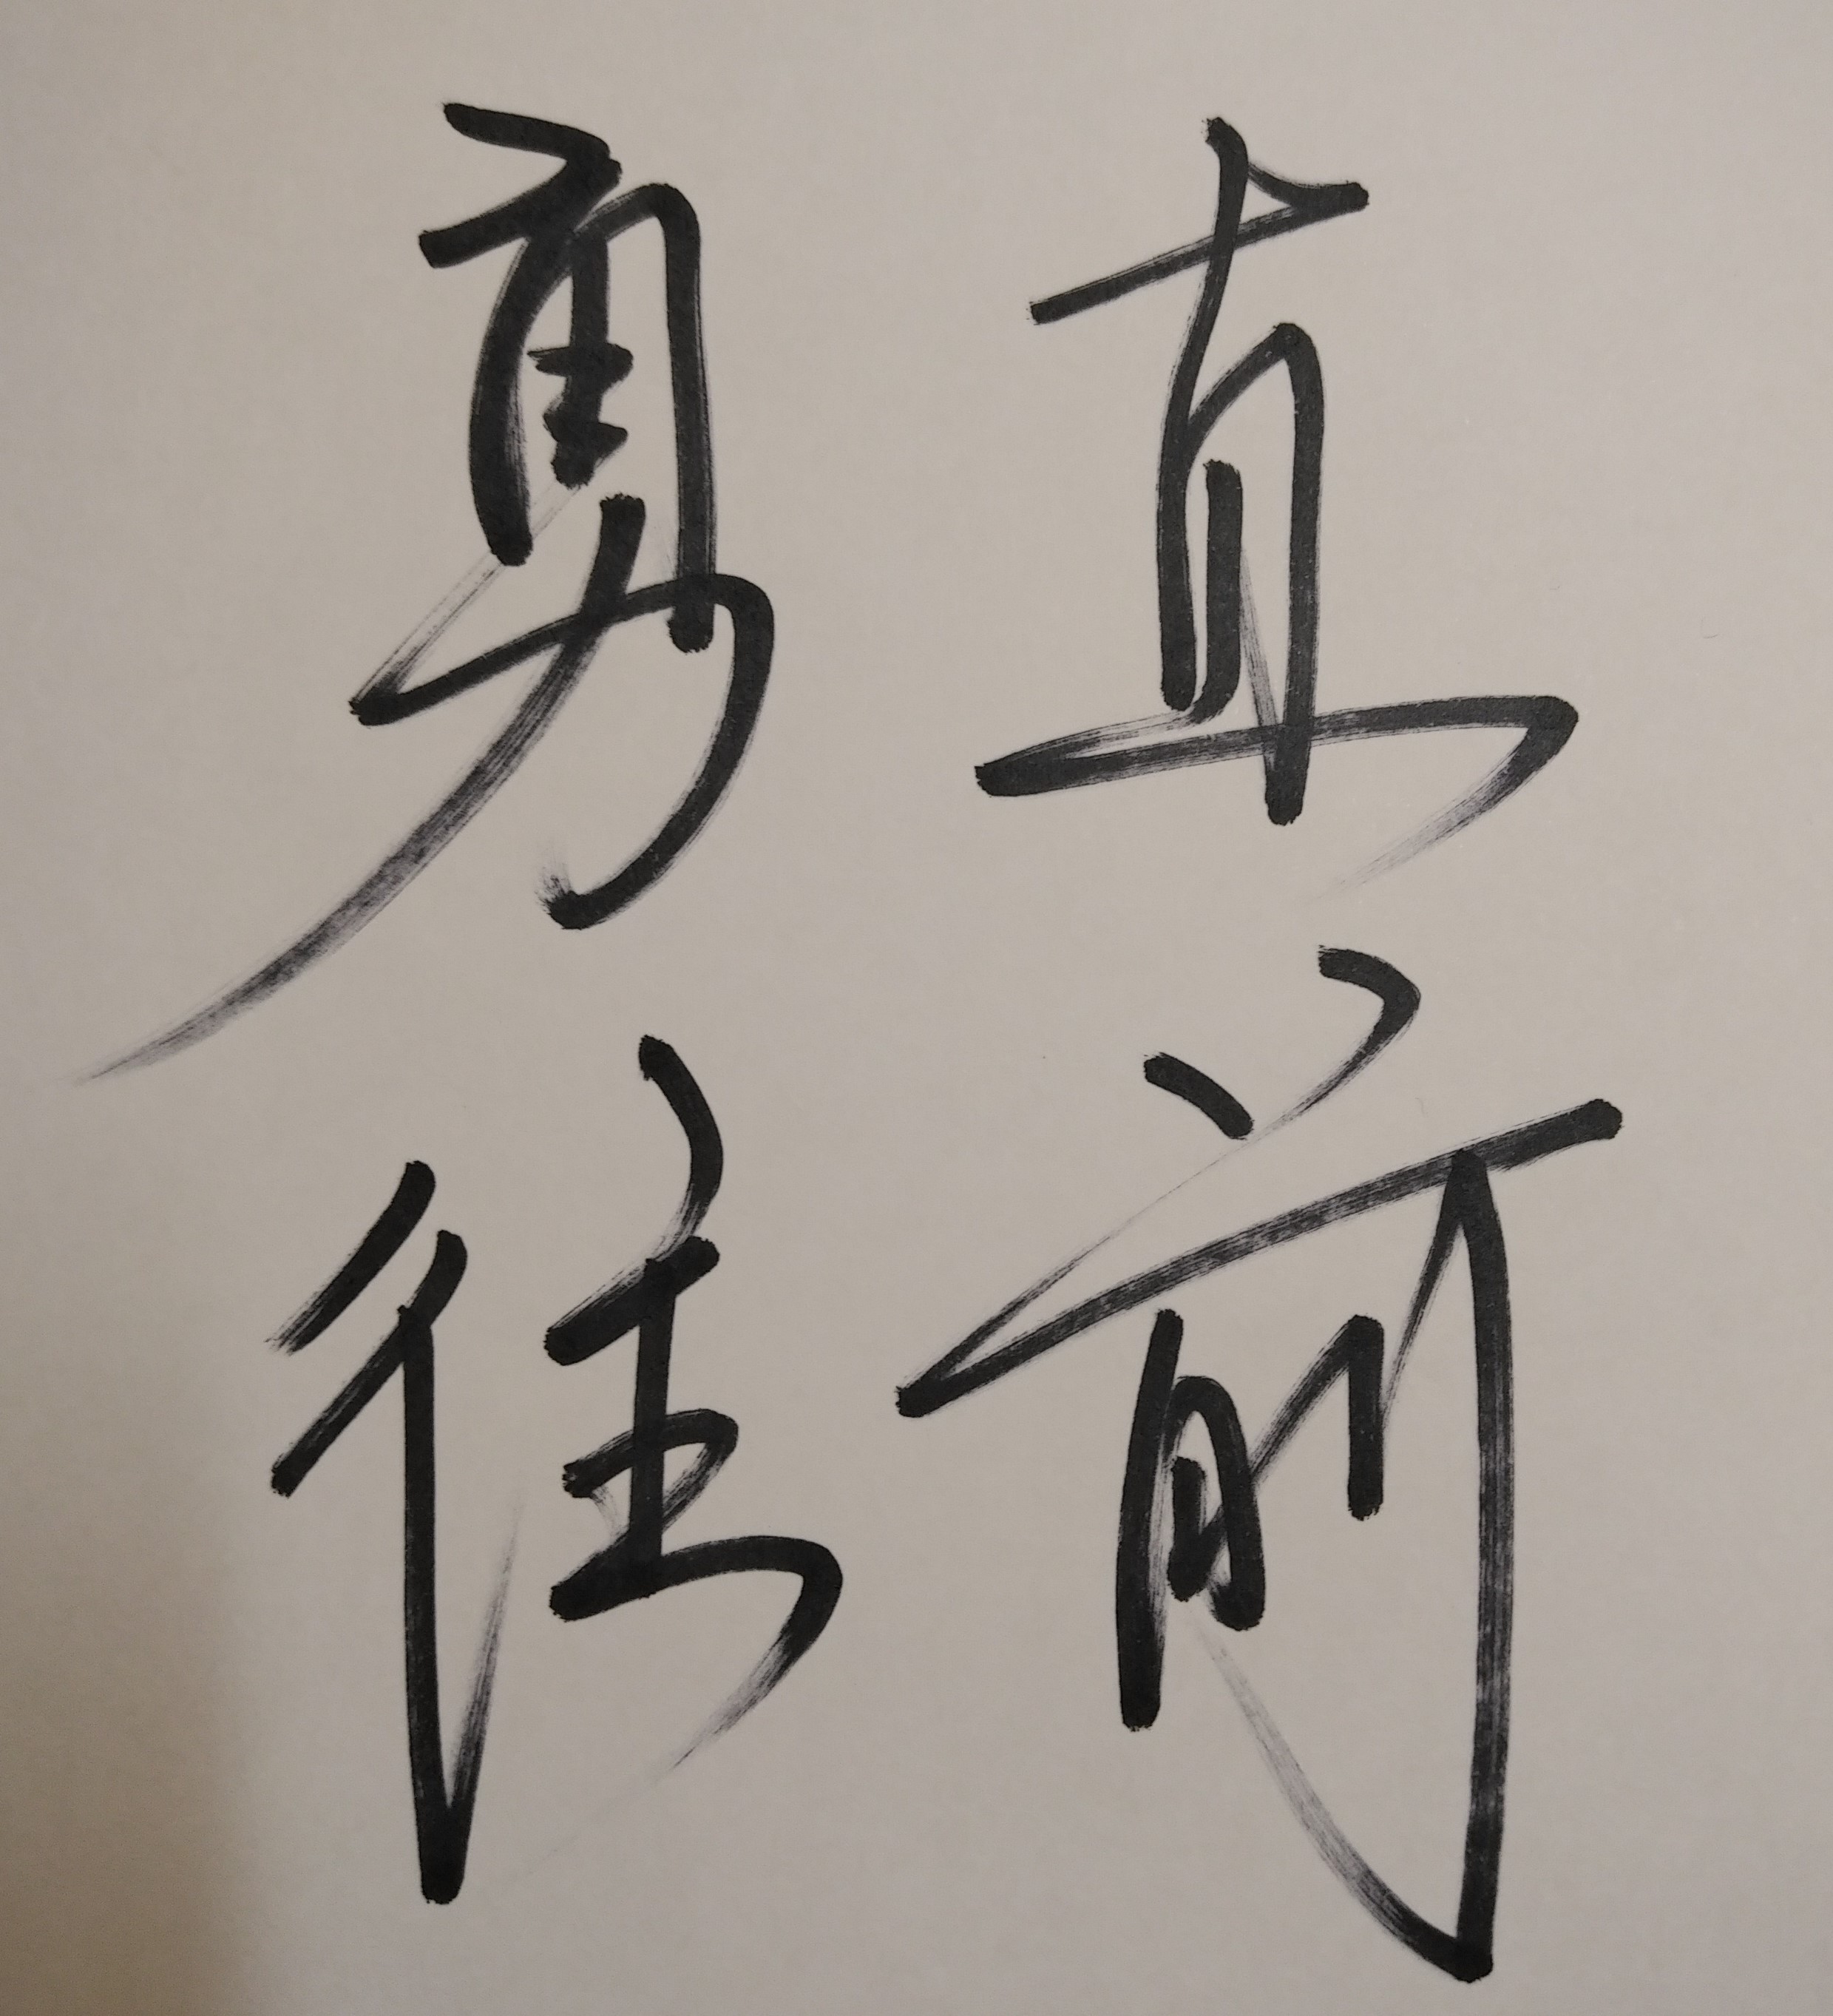 勇往
直前